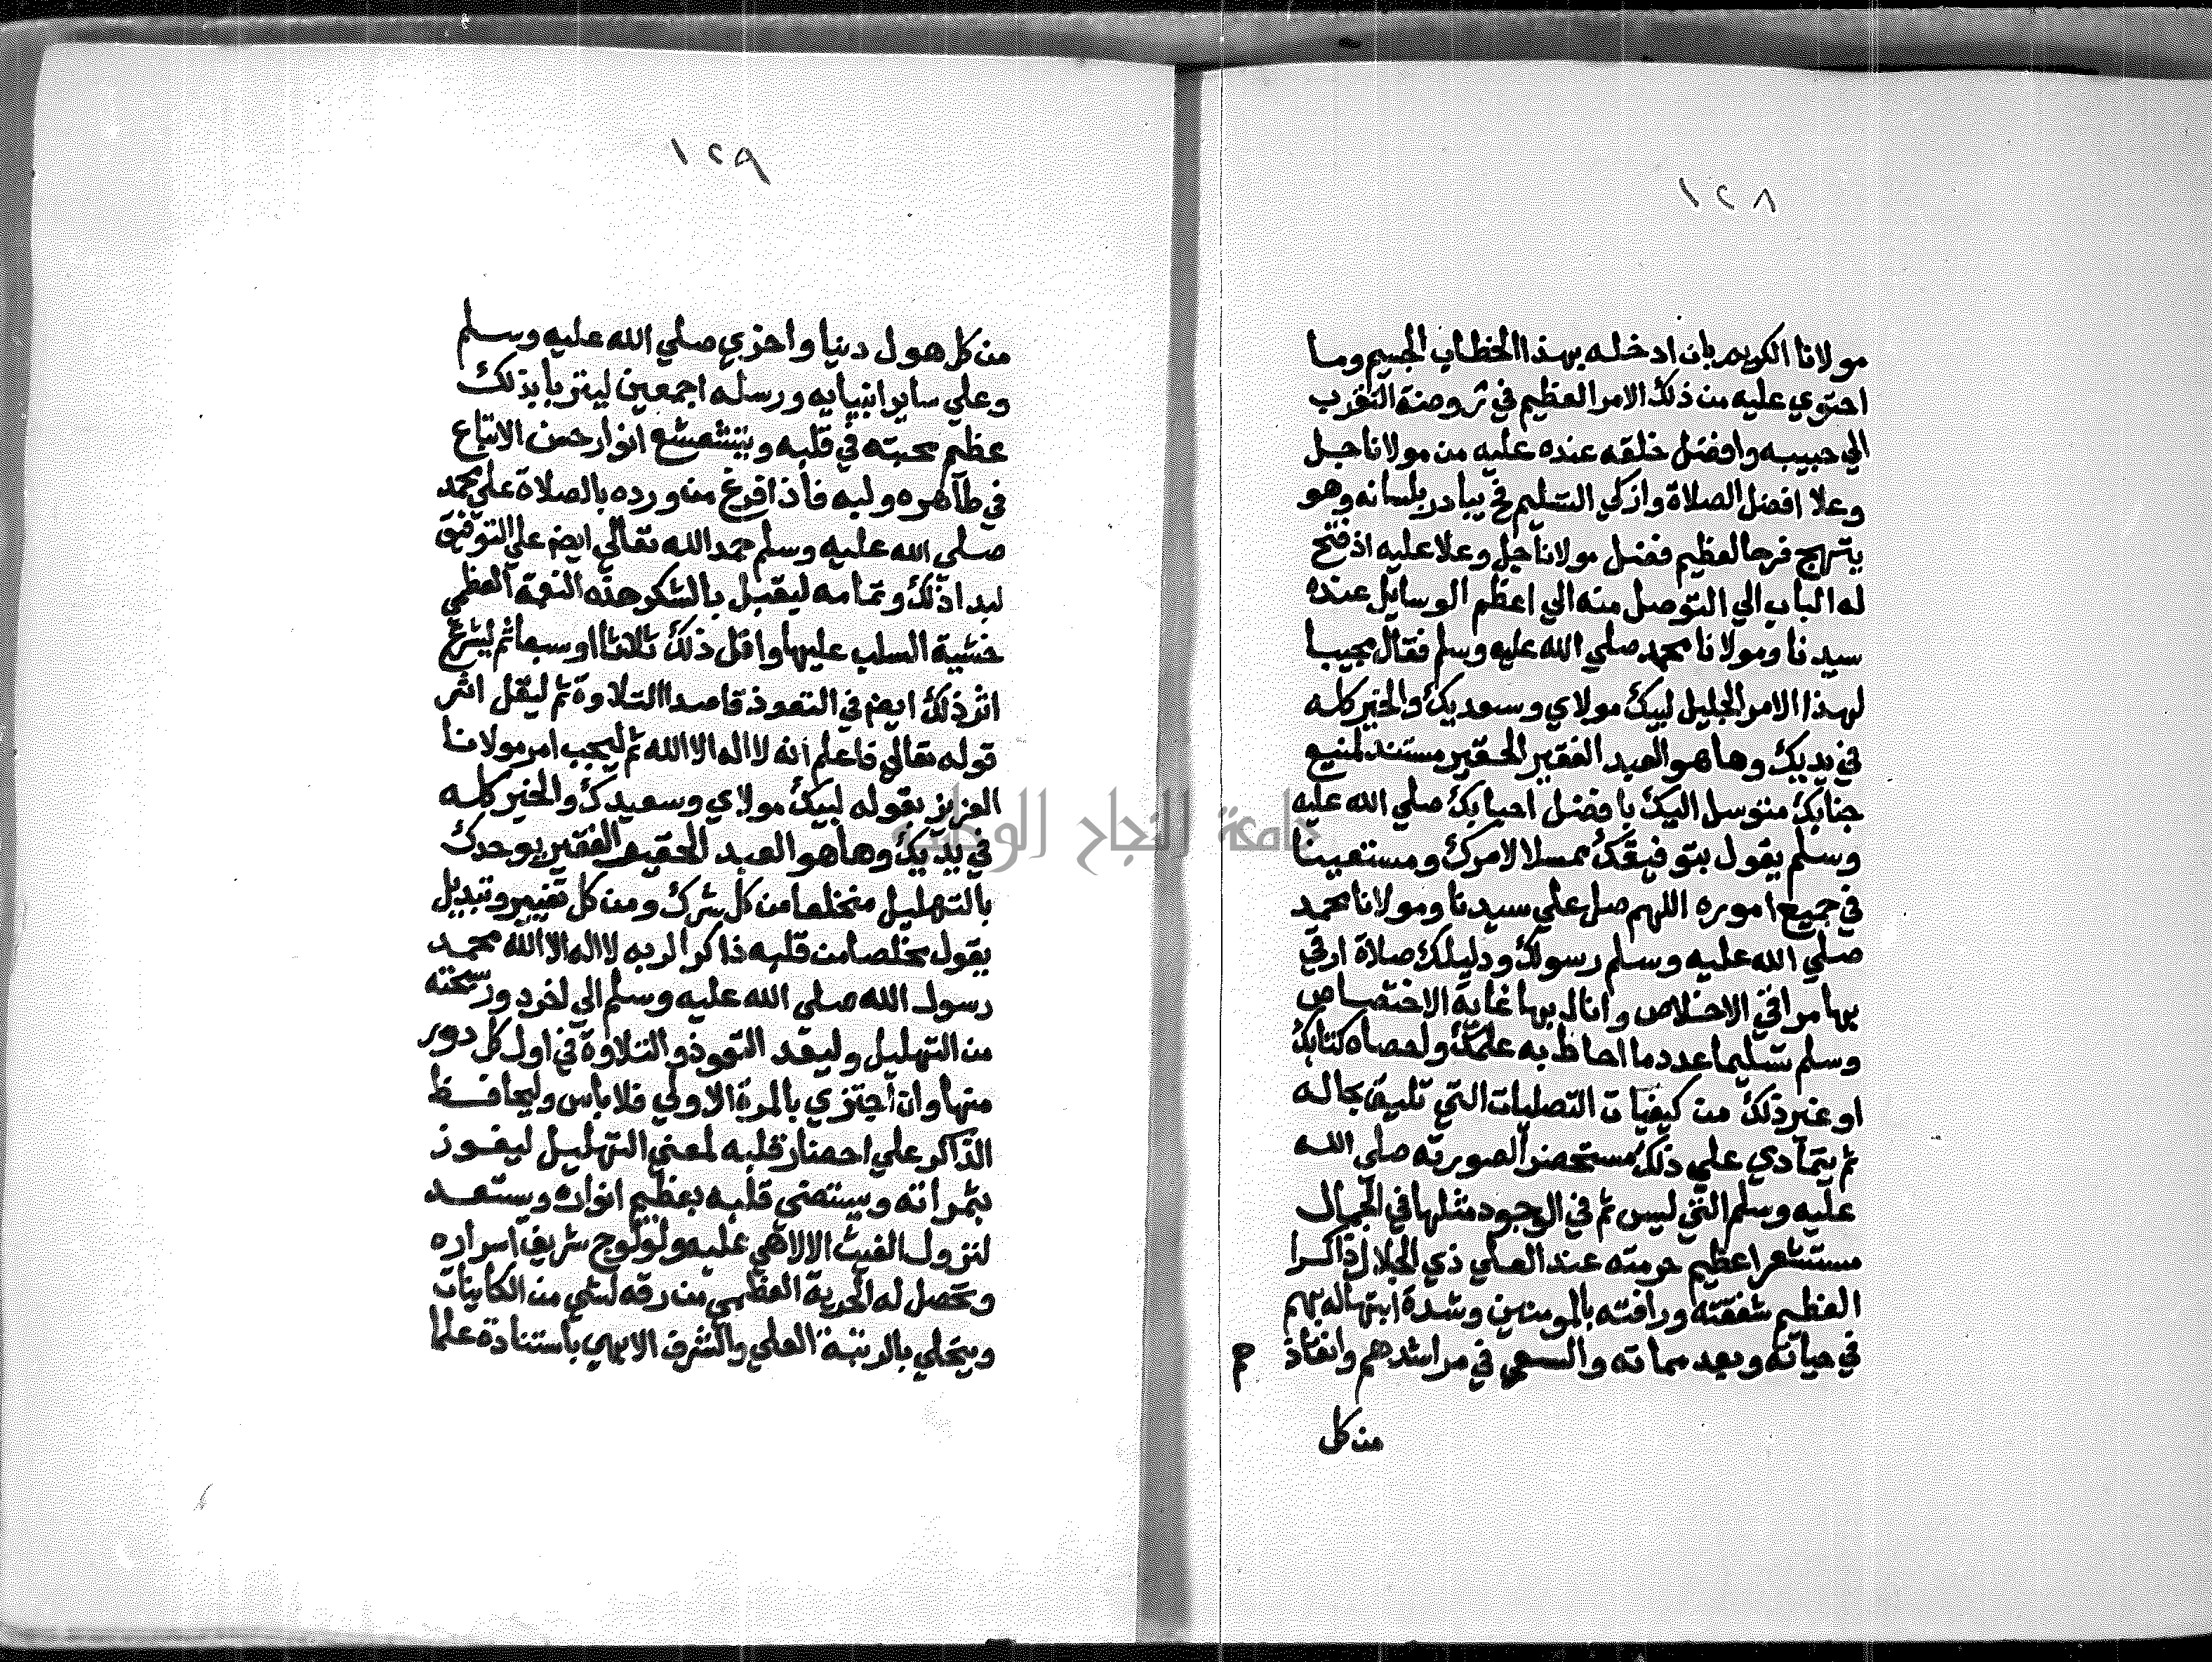 ١٢٨
مولانا الكريم بان ادخله بهذا الخطاب الجسيم وما
احتوي عليه من ذلك الامر العظيم في روضة التقرب
الي حبيبه وافضل خلقه عنده عليه من مولانا جل
وعلا افضل الصلاة وازكي التسليم فح يبادر بلسانه وهو
يبتهج فرحا لعظيم فضل مولانا جل وعلا عليه اذ فتح
له الباب الي التوصل منه الي اعظم الوسايل عنده
سيدنا ومولانا محمد صلي الله عليه وسلم فقال مجيبا
لهذا الامر الجليل لبيك مولاي وسعديك والخير كله
في يديك وها هو العبد الفقير الحقير مستند لمنيع
جنابك متوسل اليك بافضل احبابك صلي الله عليه
وسلم يقول بتوفيقك ممسلا لامرك ومستعينا
في جميع اموره اللهم صل علي سيدنا ومولانا محمد
صلي الله عليه وسلم رسولك ودليلك صلاة ارقي
بها مراقي الاخلاص وانال بها غاية الاختصاص
وسلم تسليما عدد ما احاط به علمك ولحصاه كتابك
او غير ذلك من كيفيات التصليات التي تليق بحاله
ثم يتمادي علي ذلك مستحضرا لصورته صلي الله
عليه وسلم التي ليس ثم في الوجود مثلها في الجمال
مستشعرا عظيم حرمته عند العلي ذي الجلال ذاكرا
العظيم شفقته ورافته بالمومنين وشدة ابتهاله بهم
في حياته وبعد مماته والسعي في مراشدهم وانقاذ هم
من كل
١٢٩
من كل هول دنيا واخري صلي الله عليه وسلم
وعلي ساير انبيايه ورسله اجمعين ليتربا بذلك
عظم محبته في قلبه ويتشعشع انوار حسن الاتباع
في ظاهره ولبه فاذا فرغ من ورده بالصلاة علي محمد
صلي الله عليه وسلم حمد الله تعالي ايضم علي التوفيق
لبدا ذلك وتمامه ليقبل بالشكر هذه النعمة العظمي
خشية السلب عليها واقل ذلك ثلاثا او سبعا ثم ليشرع
اثر ذلك ايضم في التعوذ قاصدا التلاوة ثم ليقل اثر
قوله تعالي فاعلم انه لا اله الا الله ثم ليجب امر مولانا
العزيز بقوله لبيك مولاي وسعيدك والخير كله
في يديك وها هو العبد الحقير الفقير يوحدك
بالتهليل متخلصا من كل شرك ومن كل تغيير وتبديل
يقول مخلصا من قلبه ذاكرا لربه لا اله الا الله محمد
رسول الله صلي الله عليه وسلم الي اخر دور سبحته
من التهليل وليعد التعوذ والتلاوة في اول كل دور
منها وان اجتزي بالمرة الاولي فلا باس وليحافظ
الذاكر علي احضار قلبه لمعني التهليل ليفوز
بثمراته ويستضي قلبه بعظيم انواره ويستعد
لنزول الغيث الالاهي عليه ولولوج شريف اسراره
وتحصل له الحرية العظمي من رقه لشي من الكاينات
ويتحلي بالرتبة العلي والشرف الابهي باستناده علما
جامعة النجاح الوطنية